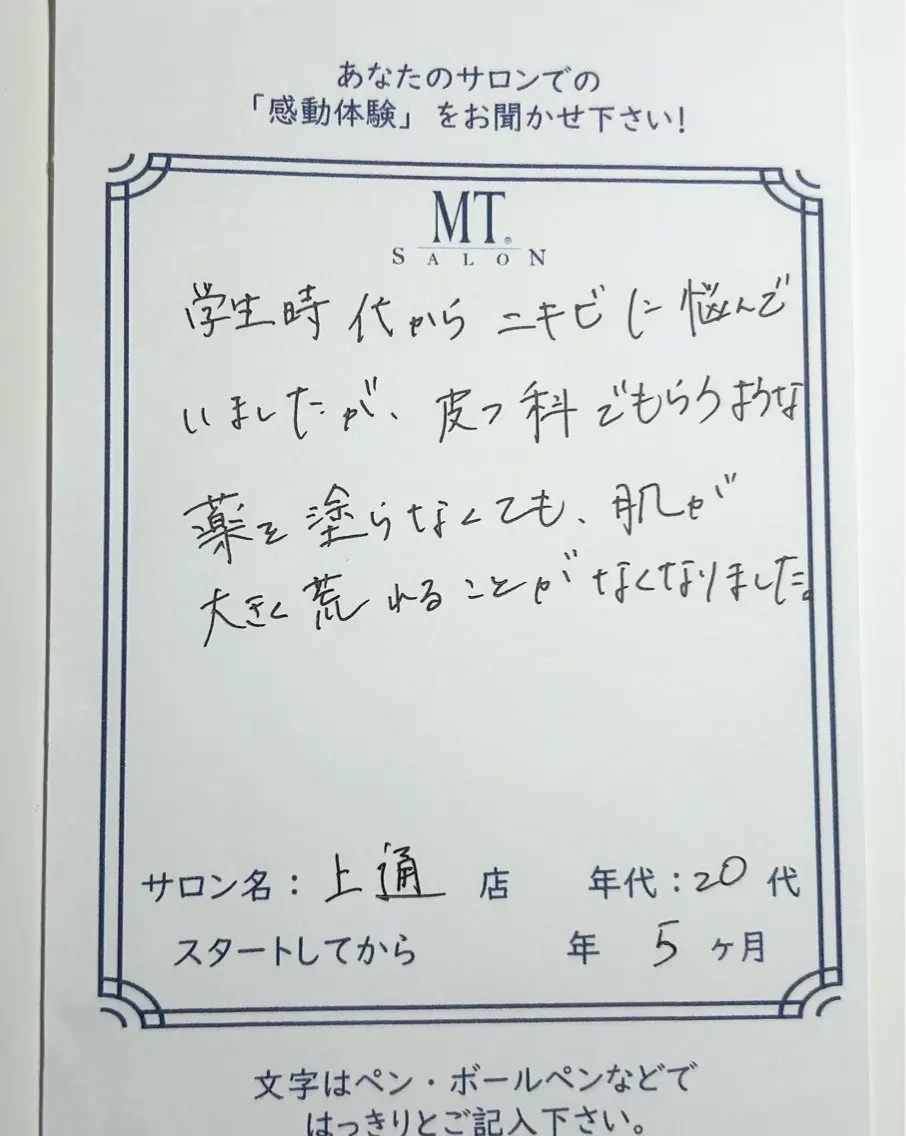 あなたのサロンでの
「感動体験」をお聞かせ下さい!
MT®
SALON
学生時代から ニキビに悩んで
いましたが、皮フ科でもらうような
薬を塗らなくても、肌が
大きく荒れることがなくなりました。
サロン名：上通 店 年代：20 代
スタートしてから 年 5 ヶ月
文字はペン・ボールペンなどで
はっきりとご記入下さい。